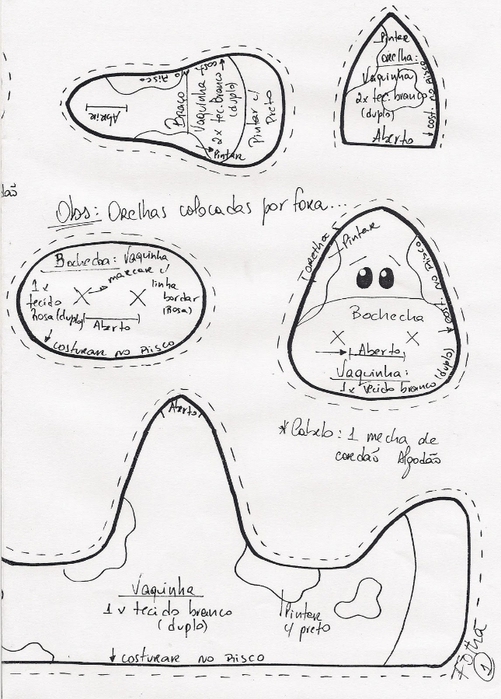 cost. no Risco
Braço
Vaquinha
2x tec. branco
(duplo)
Pintar
Pintar c/
Preto
Abrir
Pintar
orelha:
Vaquinha
2x tec. branco
(duplo)
Aberto
cost. no Risco
Obs: Orelhas colocadas por fora...
Bochecha: Vaquinha
marcar c/
1x
tecido
Rosa (duplo)
linha
bordar
(Rosa)
Aberto
costurar no Risco
orelha
Pintar
cost. no Risco
(duplo)
Bochecha
Aberto
Vaquinha:
1x tecido branco
*Cabelo: 1 mecha de
cordão Algodão
Aberto
Vaquinha
1x tecido branco
(duplo)
Pintar
c/ preto
costurar no Risco
Folha
1